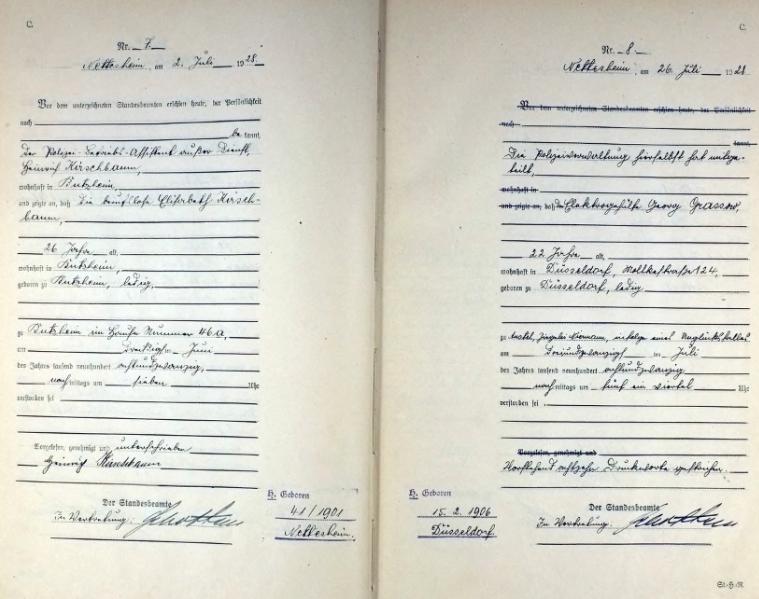 C.
Nr. 7.
Nettesheim, am 2. Juli 1928.
Vor dem unterzeichneten Standesbeamten erschien heute, der Persönlichkeit
nach
bekannt,
der Polizei-Betriebs-Assistent außer Dienst,
Heinrich Kirschbaum,
wohnhaft in Butzheim,
und zeigte an, daß die berufslose Elisabeth Kirsch-
baum,
26 Jahre alt,
wohnhaft in Butzheim,
geboren zu Butzheim, ledig,
zu Butzheim im Hause Nummer 46a,
am dreißigsten Juni
des Jahres tausend neunhundert achtundzwanzig,
nachmittags um sieben Uhr
verstorben sei
Vorgelesen, genehmigt und unterschrieben
Heinrich Kirschbaum
Der Standesbeamte
In Vertretung:
H. Geboren
41/1901
Nettesheim.
C.
Nr. 8
Nettesheim, am 26. Juli 1928
Vor dem unterzeichneten Standesbeamten erschien heute, der Persönlichkeit
nach
kannt,
Die Polizeiverwaltung hierselbst hat mitge-
teilt,
wohnhaft in
und zeigte an, daß der Elektrogehilfe Georg Grassow,
22 Jahre alt,
wohnhaft in Düsseldorf, Moltkestrasse 124,
geboren zu Düsseldorf, ledig
zu Anstel, Ziegelei infolge eines Unglücksfalles
am dreiundzwanzigsten Juli
des Jahres tausend neunhundert achtundzwanzig
nachmittags um fünf ein viertel Uhr
verstorben sei
Vorgelesen, genehmigt und
Vorstehend achtzehn Druckworte gestrichen.
Der Standesbeamte
In Vertretung:
H. Geboren
15. 2. 1906
Düsseldorf.
St.-H.-R